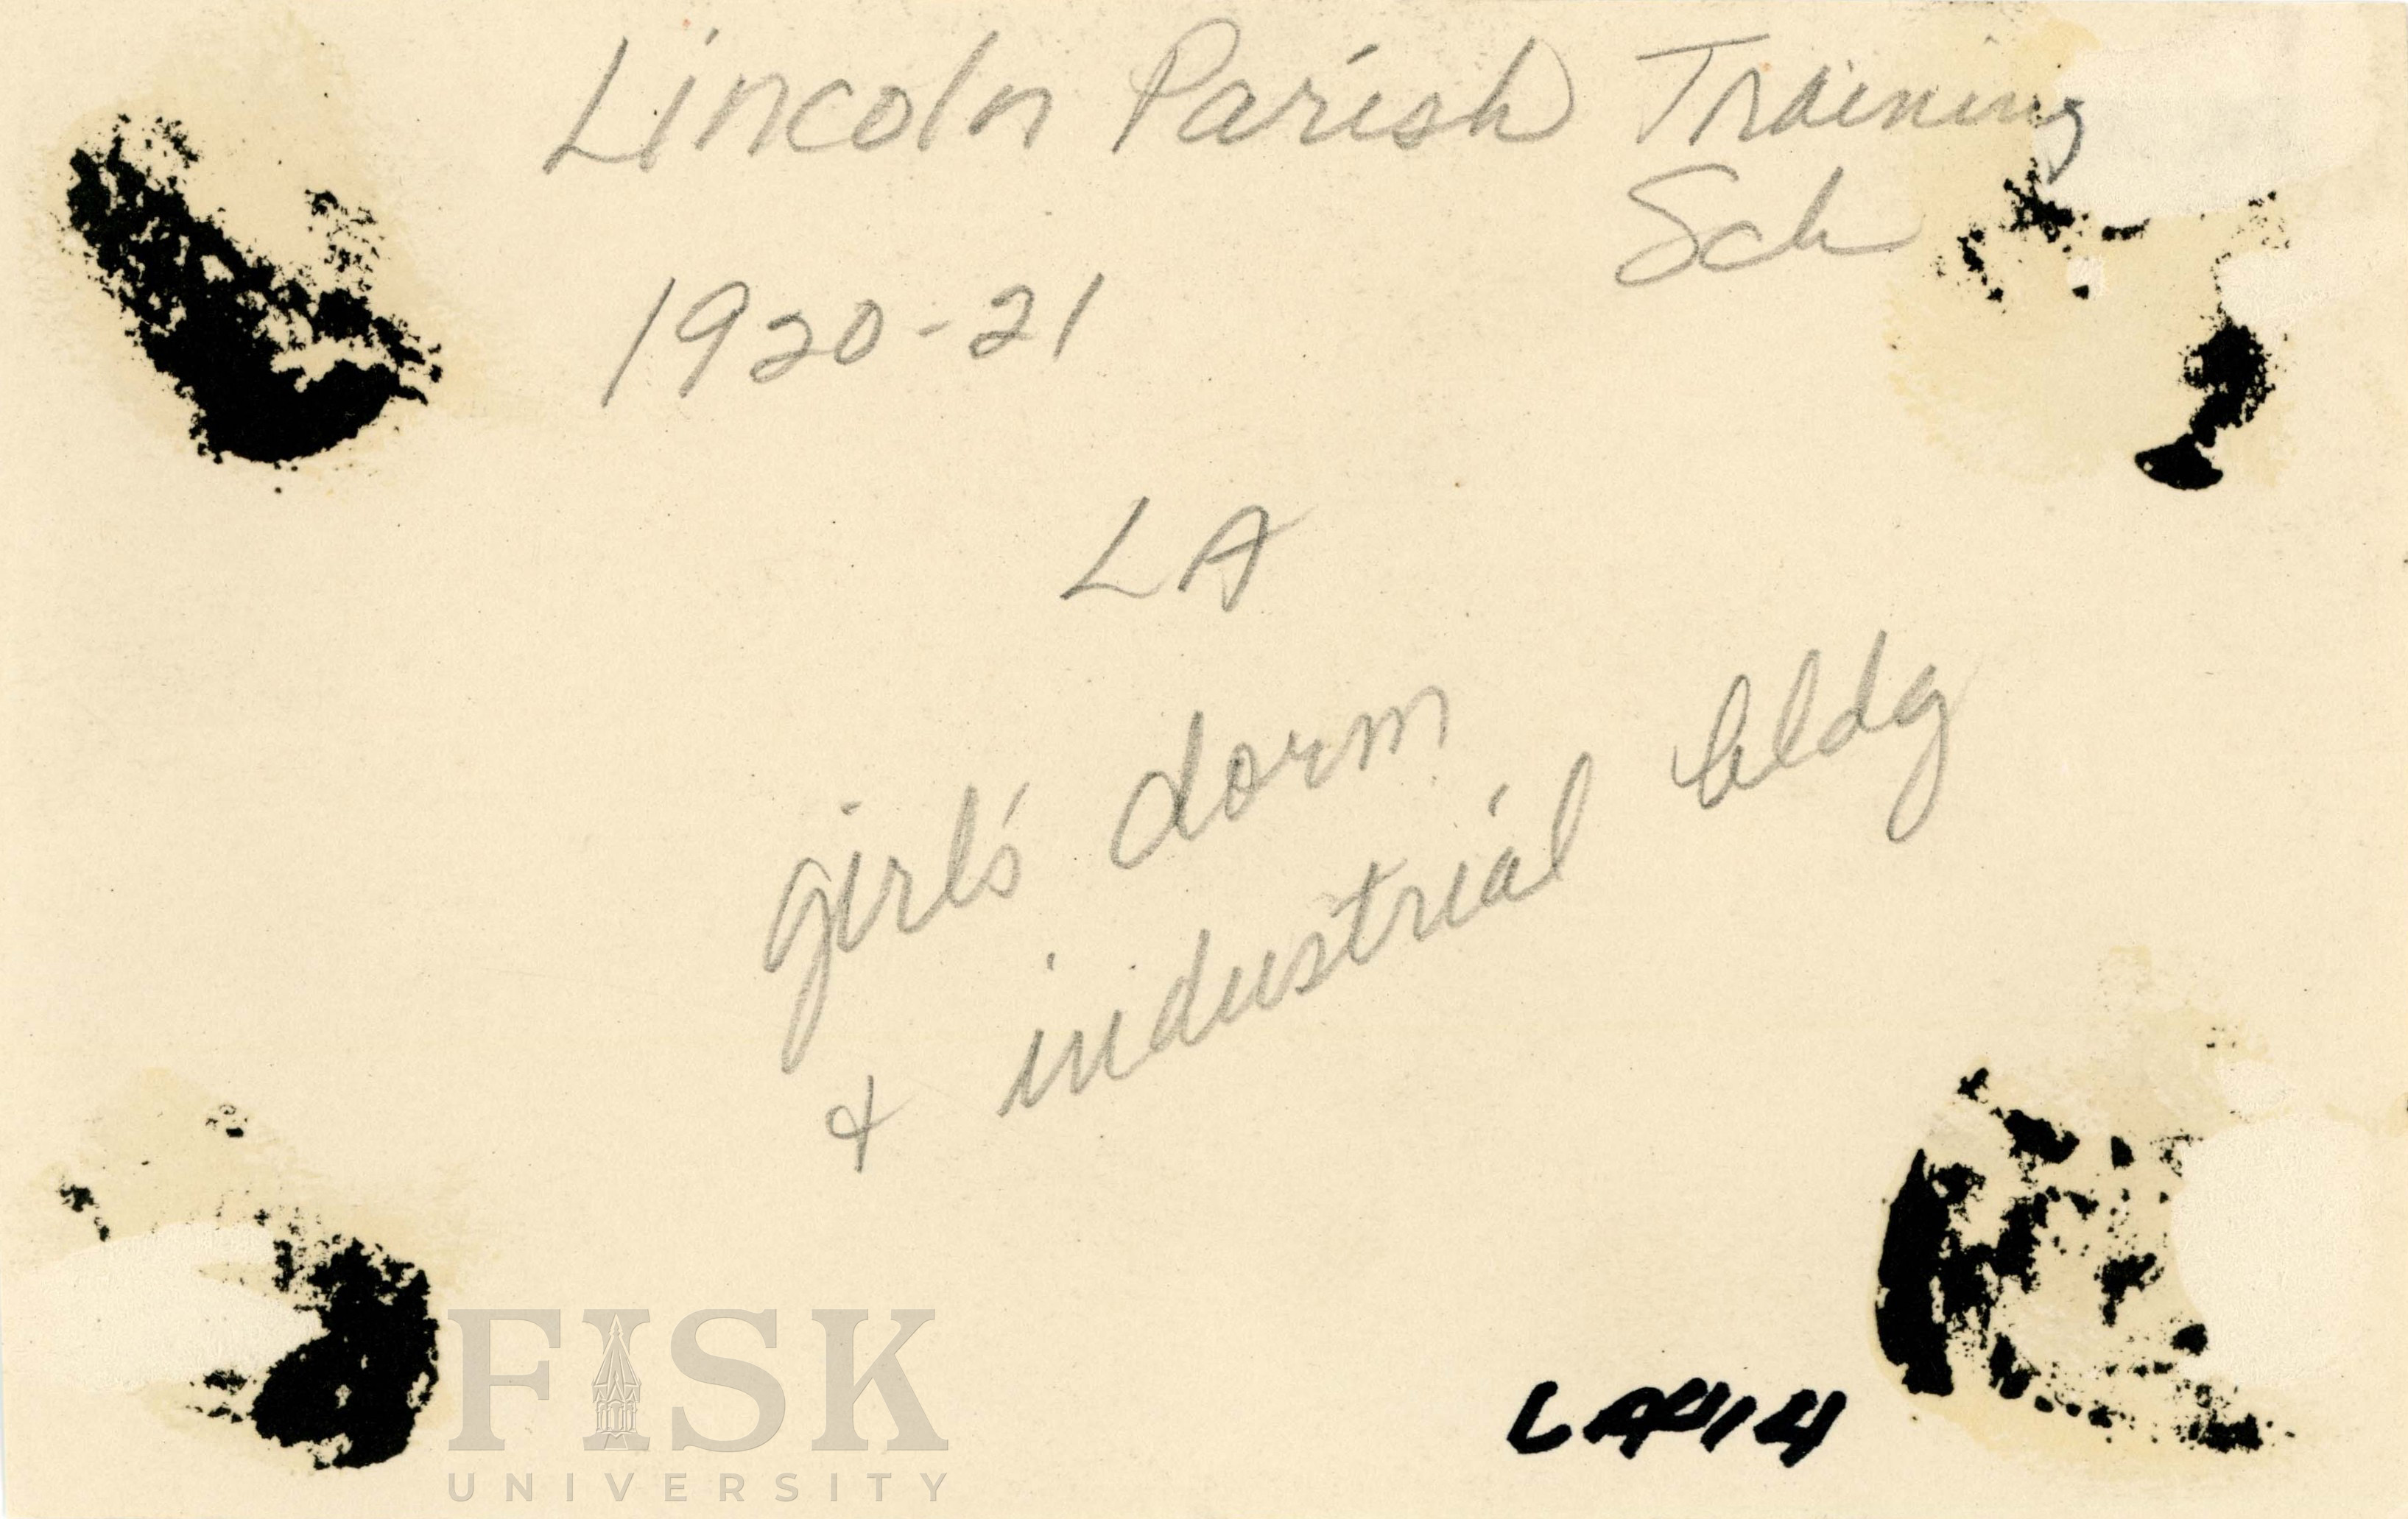 Lincoln Parish Training
Sch
1920-21
LA
girl's dorm
& industrial bldg
FISK
UNIVERSITY